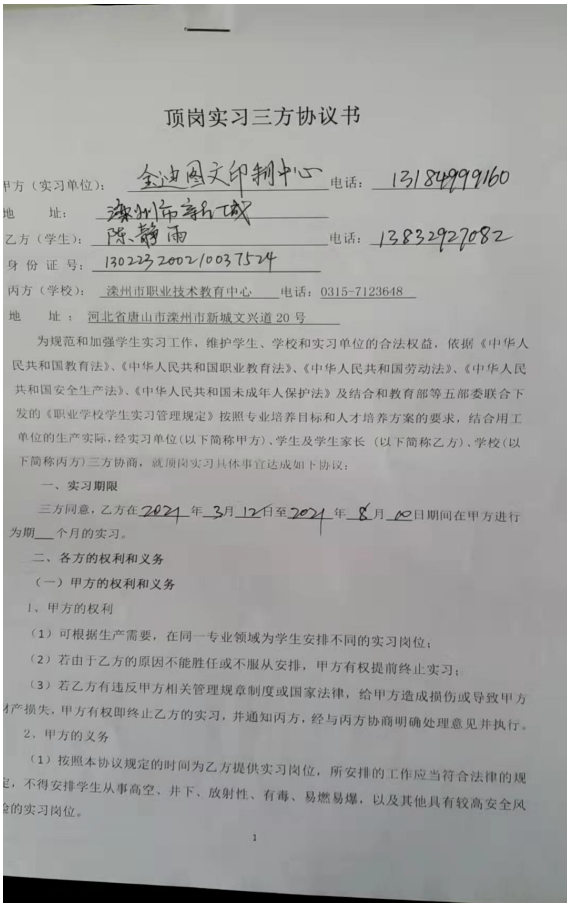 顶岗实习三方协议书
甲方（实习单位）： 金迪图文印制中心 电话： 13184999160
地 址： 滦州市新城
乙方（学生）： 陈静雨 电话： 13832927082
身 份 证 号： 130223200210037524
丙方（学校）： 滦州市职业技术教育中心 电话：0315-7123648
地 址 ： 河北省唐山市滦州市新城文兴道 20 号
为规范和加强学生实习工作，维护学生、学校和实习单位的合法权益，依据《中华人
民共和国教育法》、《中华人民共和国职业教育法》、《中华人民共和国劳动法》、《中华人民
共和国安全生产法》、《中华人民共和国未成年人保护法》及结合和教育部等五部委联合下
发的《职业学校学生实习管理规定》按照专业培养目标和人才培养方案的要求，结合用工
单位的生产实际，经实习单位（以下简称甲方）、学生及学生家长（以下简称乙方）、学校（以
下简称丙方）三方协商，就顶岗实习具体事宜达成如下协议：
一、实习期限
三方同意，乙方在 2021 年 3 月 12 日至 2021 年 8 月 日期间在甲方进行
为期___个月的实习。
二、各方的权利和义务
（一）甲方的权利和义务
1、甲方的权利
（1）可根据生产需要，在同一专业领域为学生安排不同的实习岗位；
（2）若由于乙方的原因不能胜任或不服从安排，甲方有权提前终止实习；
（3）若乙方有违反甲方相关管理规章制度或国家法律，给甲方造成损伤或导致甲方
财产损失，甲方有权即终止乙方的实习，并通知丙方，经与丙方协商明确处理意见并执行。
2、甲方的义务
（1）按照本协议规定的时间为乙方提供实习岗位，所安排的工作应当符合法律的规
定，不得安排学生从事高空、井下、放射性、有毒、易燃易爆，以及其他具有较高安全风
险的实习岗位。
1